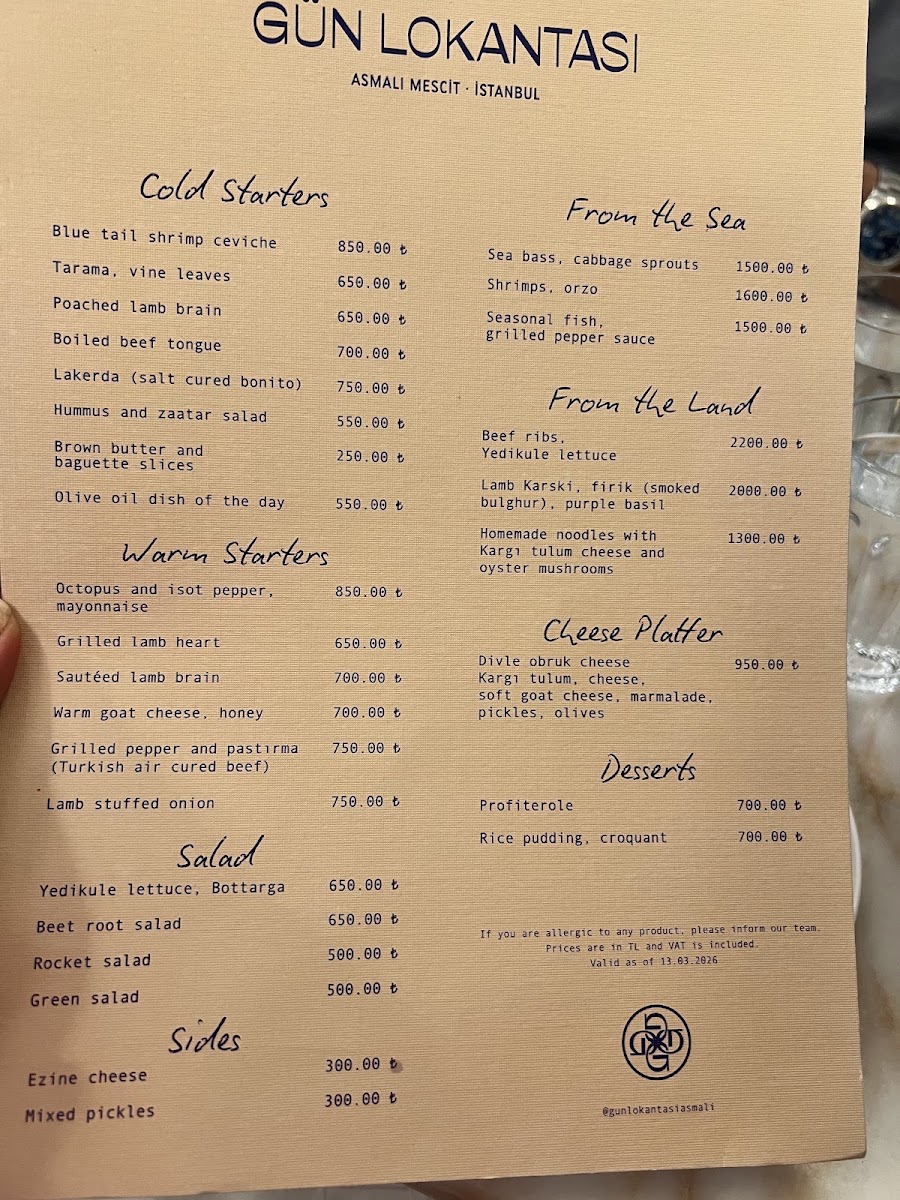 GÜN LOKANTASI
ASMALI MESCİT · İSTANBUL
Cold Starters
Blue tail shrimp ceviche 850.00 ₺
Tarama, vine leaves 650.00 ₺
Poached lamb brain 650.00 ₺
Boiled beef tongue 700.00 ₺
Lakerda (salt cured bonito) 750.00 ₺
Hummus and zaatar salad 550.00 ₺
Brown butter and
baguette slices 250.00 ₺
Olive oil dish of the day 550.00 ₺
Warm Starters
Octopus and isot pepper, 850.00 ₺
mayonnaise
Grilled lamb heart 650.00 ₺
Sautéed lamb brain 700.00 ₺
Warm goat cheese, honey 700.00 ₺
Grilled pepper and pastırma 750.00 ₺
(Turkish air cured beef)
Lamb stuffed onion 750.00 ₺
Salad
Yedikule lettuce, Bottarga 650.00 ₺
Beet root salad 650.00 ₺
Rocket salad 500.00 ₺
Green salad 500.00 ₺
Sides
Ezine cheese 300.00 ₺
Mixed pickles 300.00 ₺
From the Sea
Sea bass, cabbage sprouts 1500.00 ₺
Shrimps, orzo 1600.00 ₺
Seasonal fish, 1500.00 ₺
grilled pepper sauce
From the Land
Beef ribs, 2200.00 ₺
Yedikule lettuce
Lamb Karski, firik (smoked 2000.00 ₺
bulghur), purple basil
Homemade noodles with 1300.00 ₺
Kargı tulum cheese and
oyster mushrooms
Cheese Platter
Divle obruk cheese 950.00 ₺
Kargı tulum, cheese,
soft goat cheese, marmalade,
pickles, olives
Desserts
Profiterole 700.00 ₺
Rice pudding, croquant 700.00 ₺
If you are allergic to any product, please inform our team.
Prices are in TL and VAT is included.
Valid as of 13.03.2026
@gunlokantasiasmali